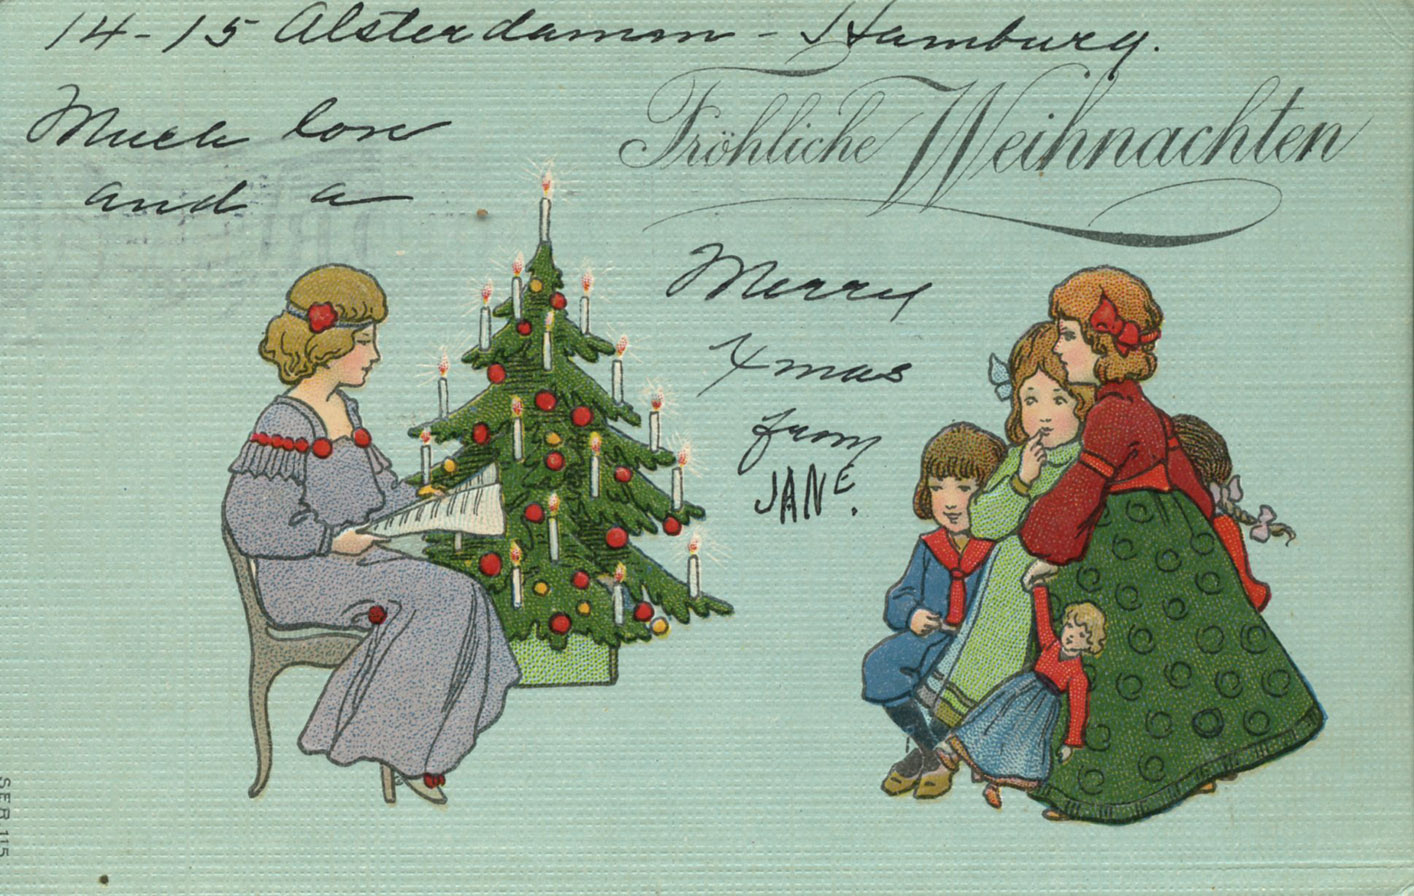 14-15 Alsterdamm - Hamburg.
Fröhliche Weihnachten
Much love
and a
Merry
Xmas
from
JANE.
SER. 115